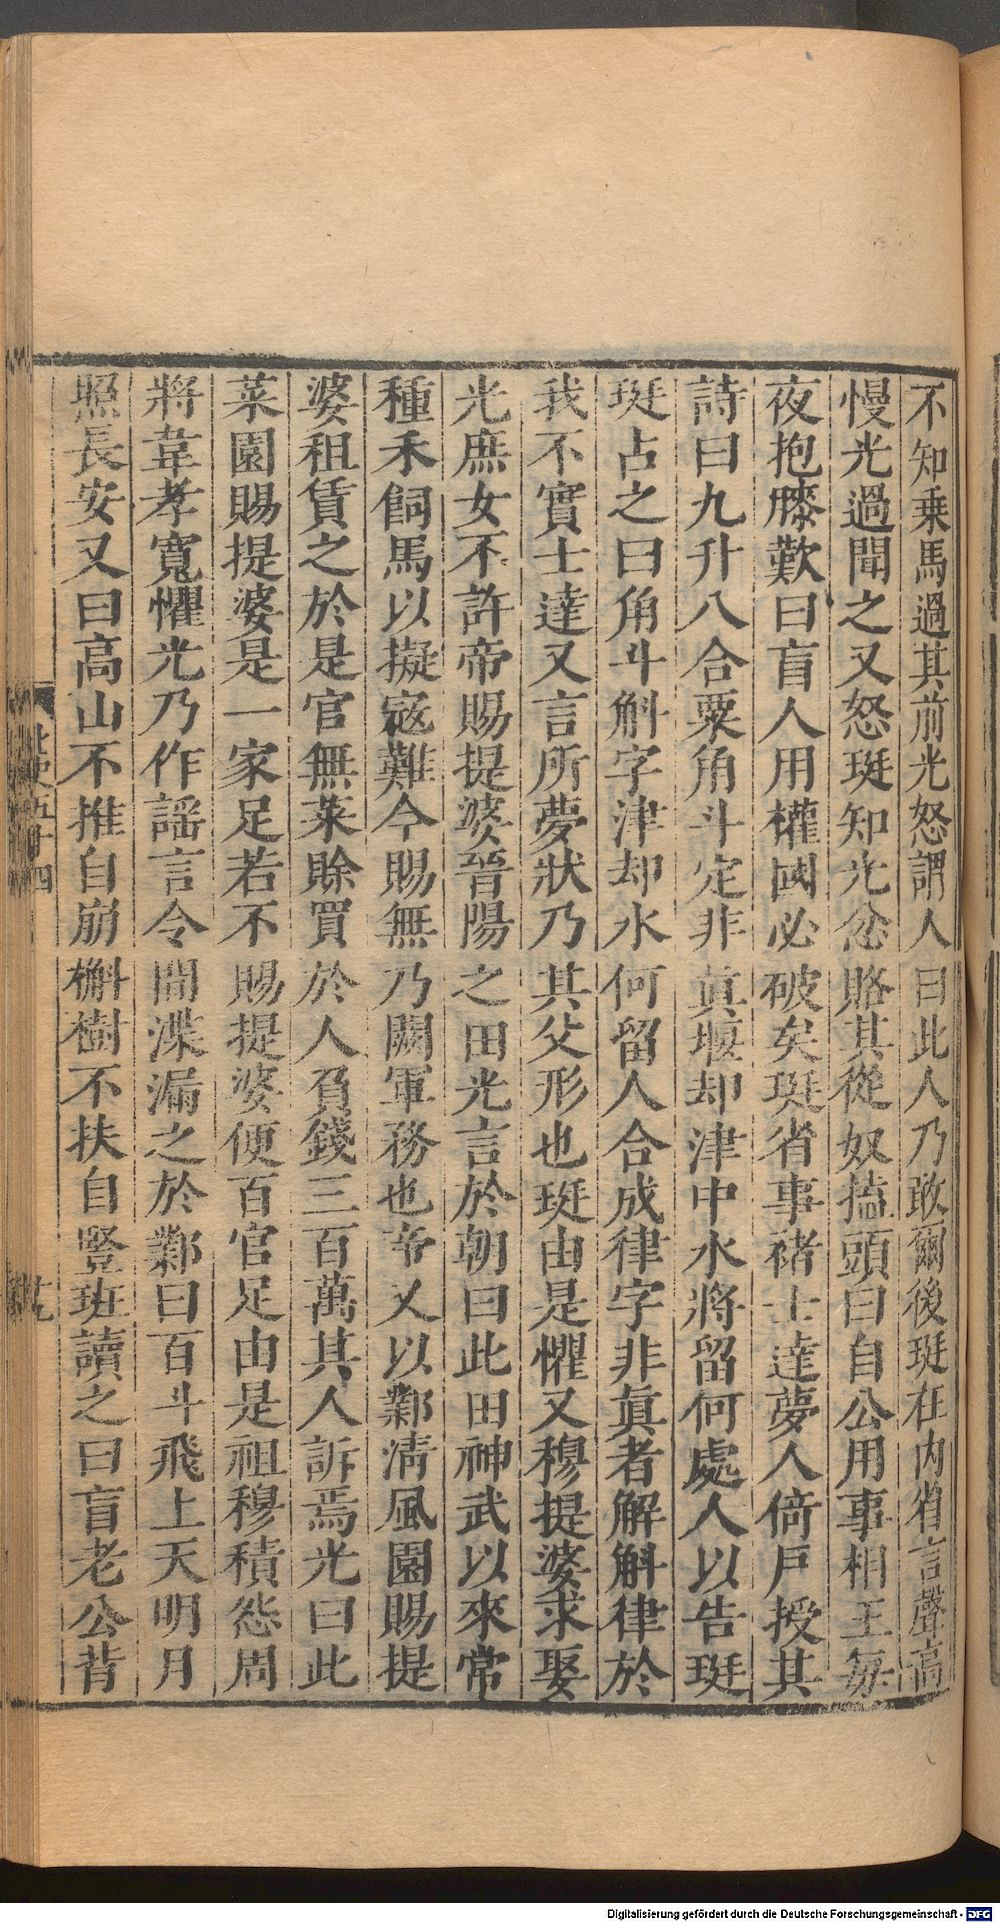 不知乗馬過其前光怒謂人曰此人乃敢爾後珽在内省言聲高
慢光過聞之又怒珽知光忿賂其從奴搕頭曰自公用事相王毎
夜抱膝歎曰盲人用權國必破矣珽省事褚士達夢人倚戸授其
詩曰九升八合粟角斗定非眞堰却津中水將留何處人以告珽
珽占之曰角斗斛字津却水何留人合成律字非眞者解斛律於
我不實士達又言所夢狀乃其父形也珽由是懼又穆提婆求娶
光庶女不許帝賜提婆晉陽之田光言於朝曰此田神武以來常
種禾飼馬以擬寇難今賜無乃闕軍務也帝又以鄴清風園賜提
婆祖賃之於是官無菜賖買於人負錢三百萬其人訴焉光曰此
菜園賜提婆是一家足若不賜提婆便百官足由是祖穆積怨周
將韋孝寬懼光乃作謡言令間漢漏之於鄴曰百斗飛上天明月
照長安又曰高山不推自崩槲樹不扶自豎珽讀之曰盲老公背
北史五十四
Digitalisierung gefördert durch die Deutsche Forschungsgemeinschaft - DFG